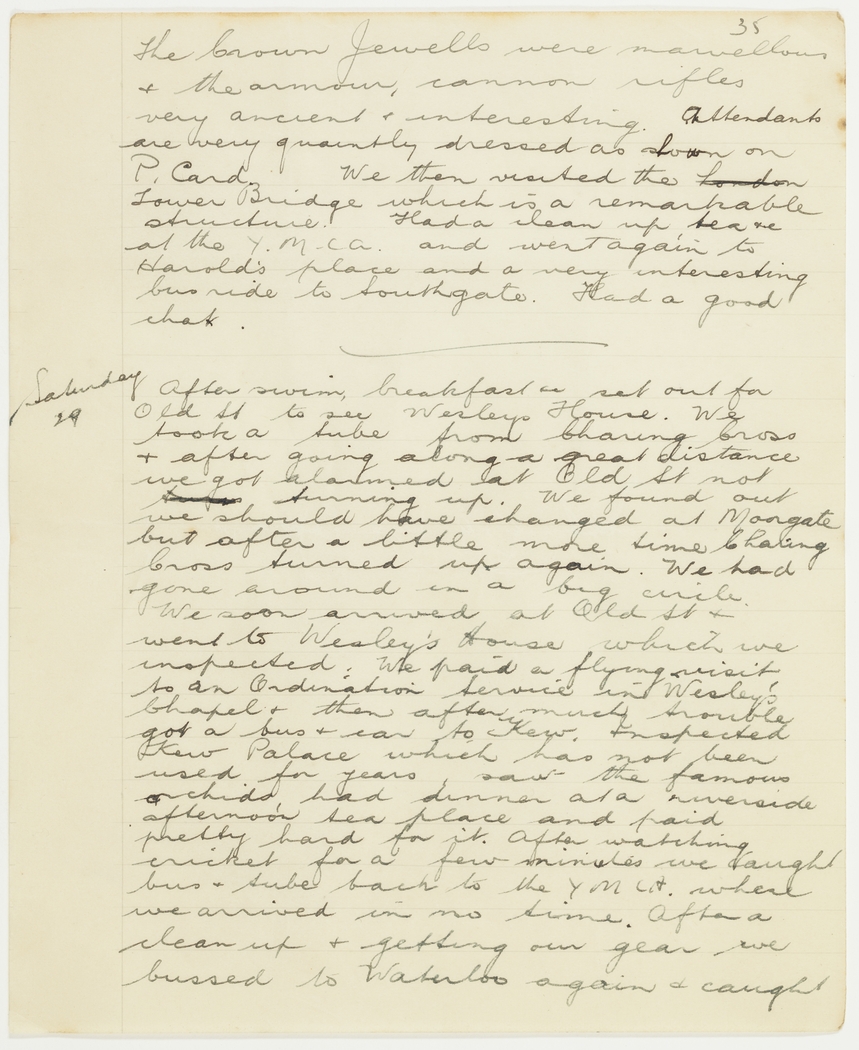 35
The Crown Jewells were marvellous
+ the armour, cannon rifles
very ancient + interesting. Attendants
are very quaintly dressed as shown on
P. Card. We then visited the London
Tower Bridge which is a remarkable
structure. Had a clean up tea +c
at the Y.M.C.A. and went again to
Harold's place and a very interesting
bus ride to Southgate. Had a good
chat.
Saturday
29
After swim, breakfast +c set out for
Old St to see Wesleys House. We
took a tube from Charing Cross
+ after going along a great distance
we got alarmed at Old St not
turning up. We found out
we should have changed at Moorgate
but after a little more time Charing
Cross turned up again. We had
gone around in a big circle.
We soon arrived at Old St +
went to Wesley's House which we
inspected. We paid a flying visit
to an Ordination Service in Wesley's
Chapel + then after much trouble
got a bus + car to Kew. Inspected
Kew Palace which has not been
used for years, saw the famous
orchids, had dinner at a riverside
afternoon tea place and paid
pretty hard for it. After watching
cricket for a few minutes we caught
bus + tube back to the Y M C A. where
we arrived in no time. After a
clean up + getting our gear we
bussed to Waterloo again + caught